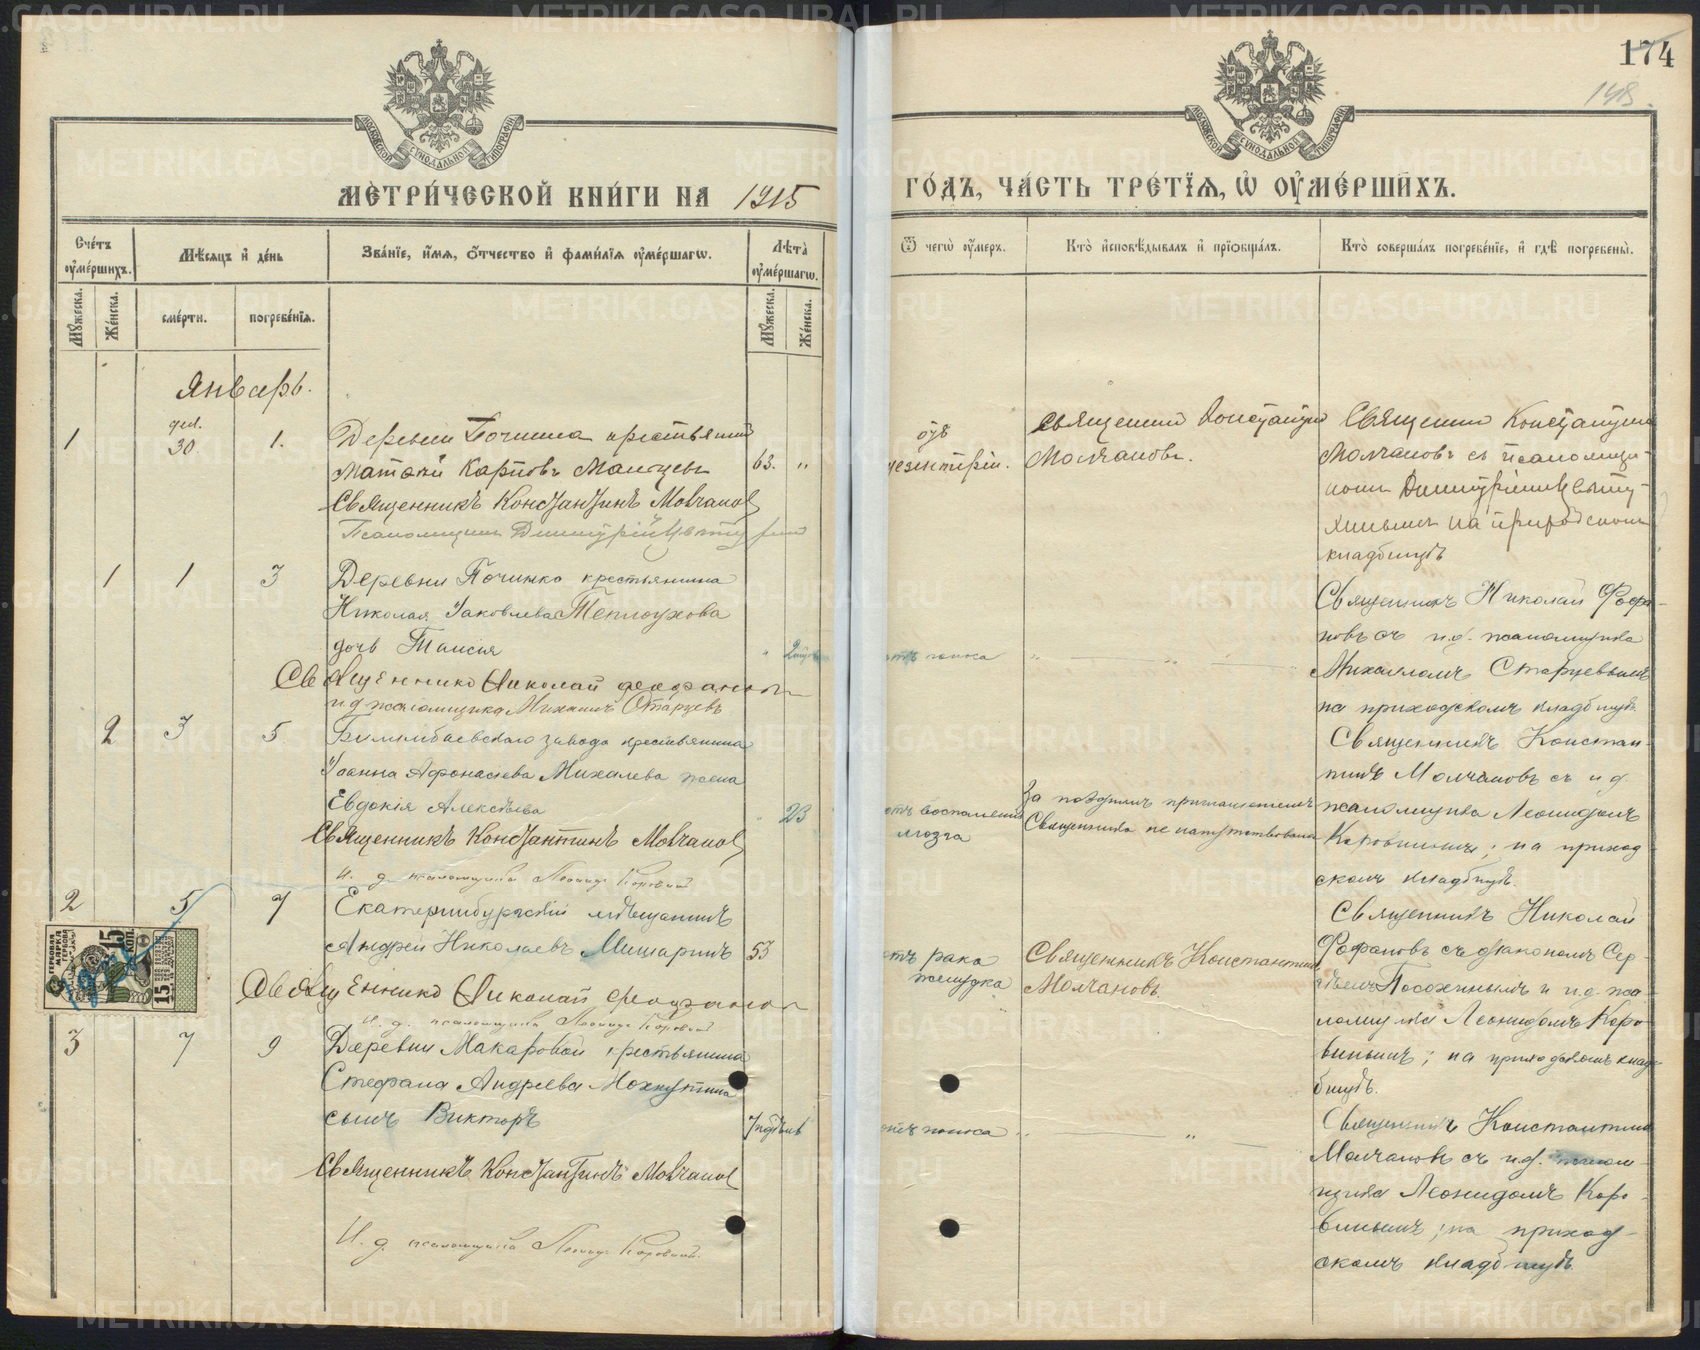 174
148.
МЕТРИ́ЧЕСКОЙ КНИ́ГИ НА 1915
ГО́ДЪ, ЧА́СТЬ ТРЕ́ТЇѦ, Ѡ҆ ОУ҆МЕ́РШИХЪ.
Сче́тъ оу҆ме́ршихъ.
Мѣ́сѧцъ и҆ де́нь
Зва́нїе, и҆́мѧ, ѻ҆́тчество и҆ фами́лїѧ оу҆ме́ршагѡ.
Лѣ́та оу҆ме́ршагѡ.
Ѿ чегѡ̀ оу҆́меръ.
Кто̀ и҆сповѣ́дывалъ и҆ прїѡбща́лъ.
Кто̀ соверша́лъ погребе́нїе, и҆ гдѣ̀ погребены̀.
Мꙋ́жеска.
Же́нска.
сме́рти.
погребе́нїѧ.
Мꙋ́жеска.
Же́нска.
Январь.
дек.
1 30. 1. Деревни Починка крестьянинъ
Карповъ 63. "
Священникъ Константинъ Молчановъ
Псаломщикъ Димитрій
отъ
Священникъ Константинъ
Молчановъ.
Священникъ Константинъ
Молчановъ съ псаломщи-
комъ Димитріемъ
на приходскомъ
кладбищѣ
1 1 3 Деревни Починка крестьянина
Николая Іаковлева Теплоухова
дочь Таисія
Священникъ Николай Феофановъ
и д псаломщика Михаилъ Старцевъ
поноса
Священникъ Николай Феофа-
новъ съ и.д. псаломщика
Михаиломъ Старцевымъ
на приходскомъ кладбищѣ.
2 3 5 Билимбаевскаго завода крестьянина
Іоанна Афонасіева Михалева жена
Евдокія Алексѣева 23
Священникъ Константинъ Молчановъ
И. д. псаломщика Леонидъ Коровинъ
отъ воспаленія
мозга
За позднимъ приглашеніемъ
Священника не напутствована
Священникъ Констан-
тинъ Молчановъ съ и д.
псаломщика Леонидомъ
Коровинымъ; на приход-
скомъ кладбищѣ.
2 5 7 Екатеринбургскій мѣщанинъ
Андрей Николаевъ Мишаринъ 53
Священникъ Николай Феофановъ
И. д. псаломщика Леонидъ Коровинъ
отъ рака
желудка
Священникъ Константинъ
Молчановъ
Священникъ Николай
Феофановъ съ діакономъ Сер-
гѣемъ Посохинымъ и и.д. пса-
ломщика Леонидомъ Коро-
винымъ; на приходскомъ клад-
бищѣ.
ГЕРБОВАЯ МАРКА
15 КОП.
15
3 7 9 Деревни Макаровой крестьянина
Стефана Андреева Мохнуткина
сынъ Викторъ 7 недѣль
Священникъ Константинъ Молчановъ
И. д. псаломщика Леонидъ Коровинъ.
отъ поноса
Священникъ Константинъ
Молчановъ съ и.д. псалом-
щика Леонидомъ Коро-
винымъ; на приход-
скомъ кладбищѣ.
METRIKI.GASO-URAL.RU